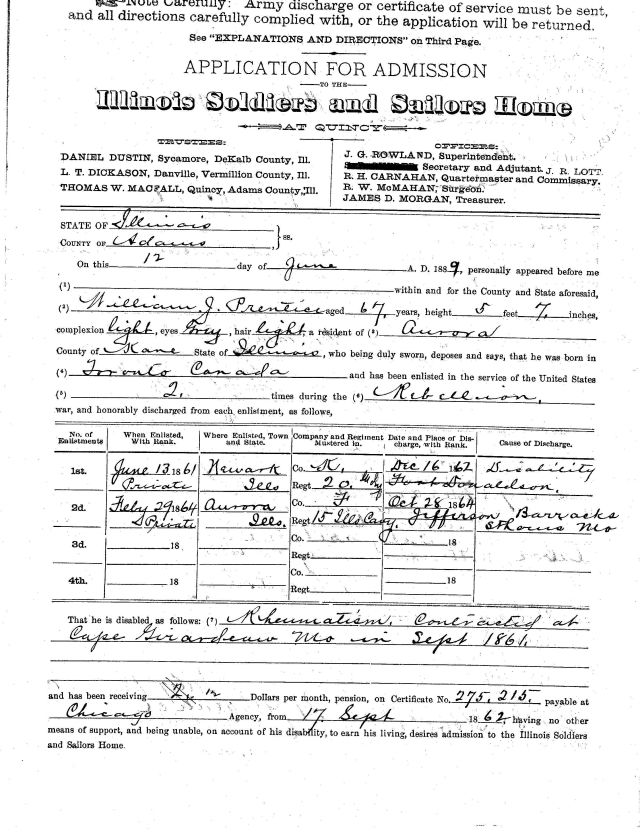 Note Carefully: Army discharge or certificate of service must be sent,
and all directions carefully complied with, or the application will be returned.
See "EXPLANATIONS AND DIRECTIONS" on Third Page.
APPLICATION FOR ADMISSION
TO THE
Illinois Soldiers and Sailors Home
AT QUINCY
TRUSTEES:
DANIEL DUSTIN, Sycamore, DeKalb County, Ill.
L. T. DICKASON, Danville, Vermillion County, Ill.
THOMAS W. MACFALL, Quincy, Adams County, Ill.
OFFICERS:
J. G. ROWLAND, Superintendent.
Secretary and Adjutant. J. R. LOTT.
R. H. CARNAHAN, Quartermaster and Commissary.
R. W. McMAHAN, Surgeon.
JAMES D. MORGAN, Treasurer.
STATE OF Illinois
COUNTY OF Adams } ss.
On this 12 day of June A. D. 1889, personally appeared before me
(1) within and for the County and State aforesaid,
(2) William J. Prentice aged 67, years, height 5 feet 7, inches,
complexion light, eyes Grey, hair light, a resident of (3) Aurora
County of Kane State of Illinois, who being duly sworn, deposes and says, that he was born in
(4) Toronto Canada and has been enlisted in the service of the United States
(5) 2, times during the (6) Rebellion,
war, and honorably discharged from each enlistment, as follows,
No. of Enlistments When Enlisted, With Rank. Where Enlisted, Town and State. Company and Regiment Mustered in. Date and Place of Discharge, with Rank. Cause of Discharge.
1st. June 13 1861 Newark Co. K, Dec 16 1862 Disability
Private Ills Regt 20 Fort Donaldson,
2d. Feby 29 1864 Aurora Co. F Oct 28 1864
Private Ills. Regt 15 Ills Cavy. Jefferson Barracks St Louis Mo
3d. 18 Co. 18
Regt
4th. 18 Co. 18
Regt
That he is disabled, as follows: (7) Rheumatism, Contracted at
Cape Girardeau Mo in Sept 1861,
and has been receiving 2, Dollars per month, pension, on Certificate No. 275,215. payable at
Chicago Agency, from 17, Sept 1862, having no other
means of support, and being unable, on account of his disability, to earn his living, desires admission to the Illinois Soldiers
and Sailors Home.